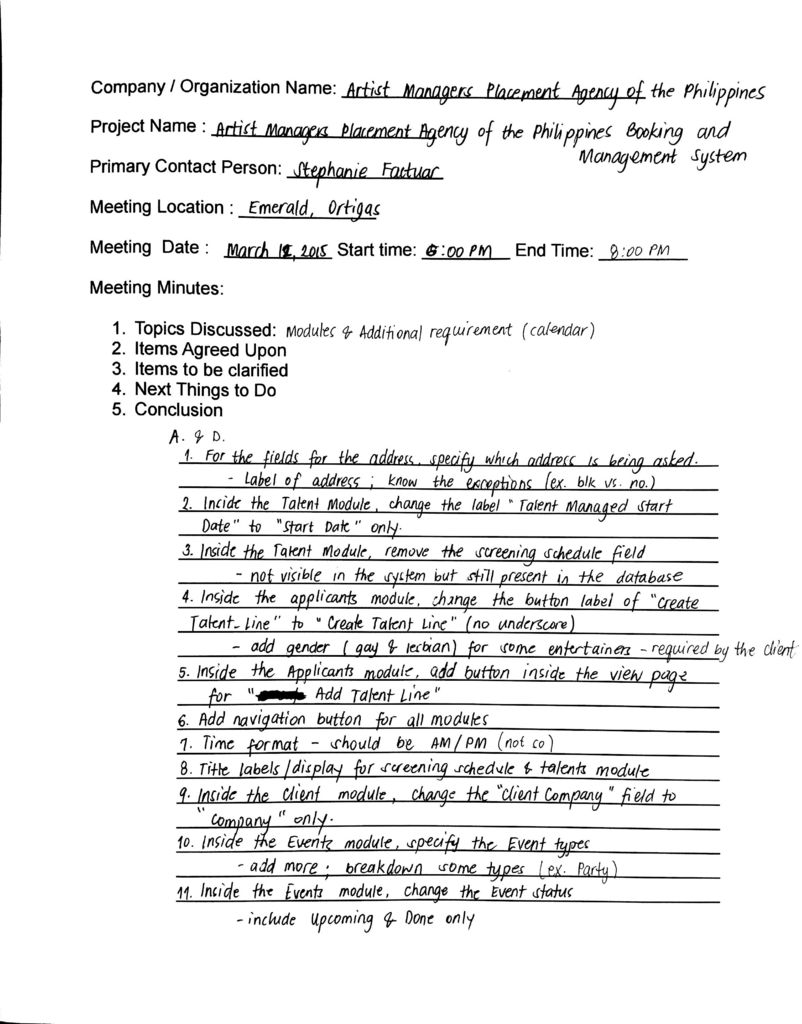 Company / Organization Name: Artist Managers Placement Agency of the Philippines
Project Name : Artist Managers Placement Agency of the Philippines Booking and
Management System
Primary Contact Person: Stephanie Factuar
Meeting Location : Emerald, Ortigas
Meeting Date : March , 2015 Start time: 6:00 PM End Time: 8:00 PM
Meeting Minutes:
1. Topics Discussed: Modules & Additional requirement (calendar)
2. Items Agreed Upon
3. Items to be clarified
4. Next Things to Do
5. Conclusion
A. & D.
1. For the fields for the address, specify which address is being asked.
- Label of address ; know the exceptions (ex. blk vs. no.)
2. Inside the Talent Module, change the label "Talent Managed Start
Date" to "Start Date" only.
3. Inside the Talent Module, remove the screening schedule field
- not visible in the system but still present in the database
4. Inside the applicants module, change the button label of "Create
Talent_Line" to "Create Talent Line" (no underscore)
- add gender (gay & lesbian) for some entertainers - required by the client
5. Inside the Applicants module, add button inside the view page
for " Add Talent Line"
6. Add navigation button for all modules
7. Time format - should be AM/PM (not co)
8. Title labels/display for screening schedule & talents module
9. Inside the Client module, change the "Client Company" field to
"Company" only.
10. Inside the Events module, specify the Event types
- add more ; breakdown some types (ex. Party)
11. Inside the Events module, change the Event status
- include Upcoming & Done only